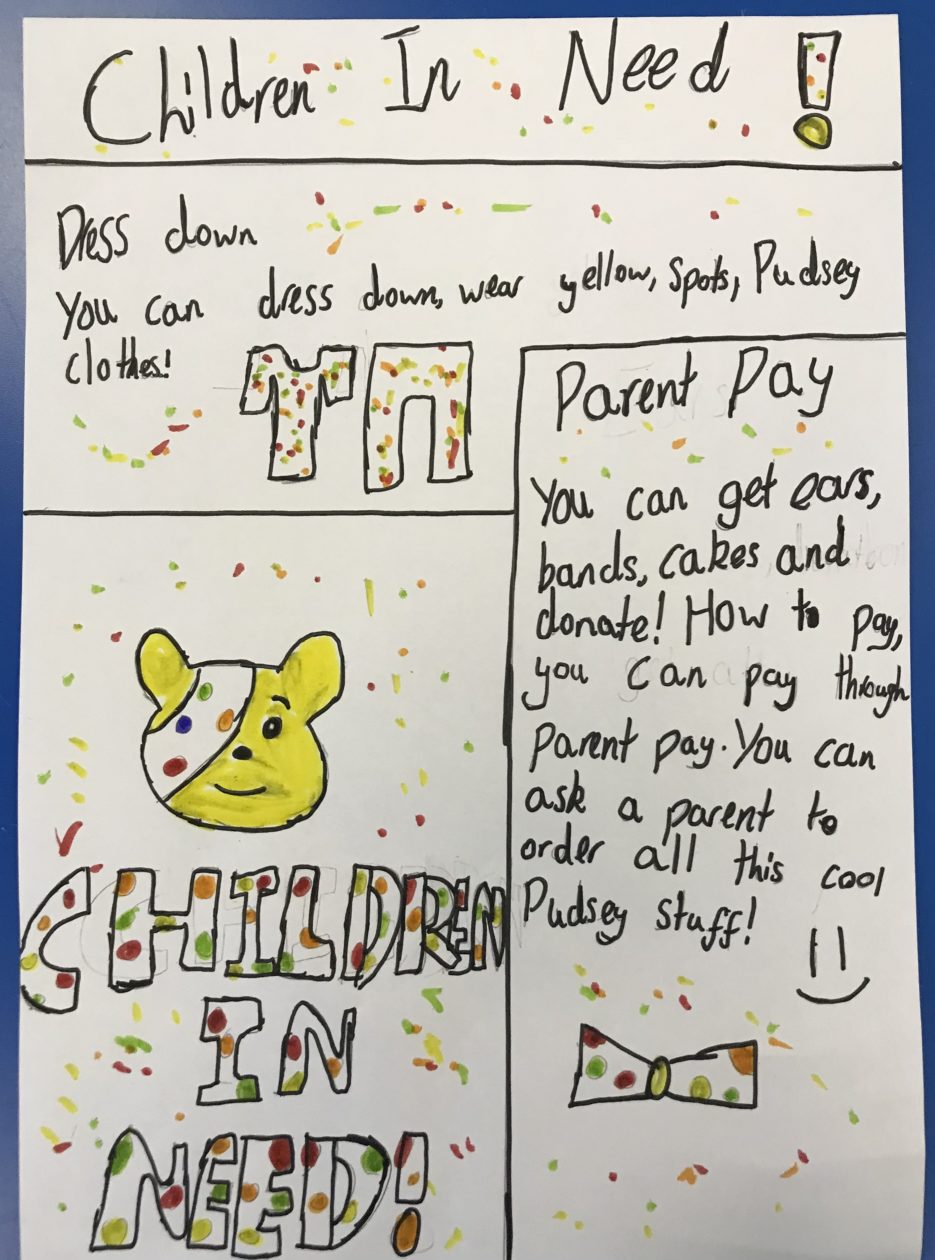 Children In Need!
Dress down
You can dress down, wear yellow, spots, Pudsey
clothes!
Parent Pay
You can get ears,
bands, cakes and
donate! How to pay,
you can pay through
parent pay. You can
ask a parent to
order all this cool
Pudsey stuff!
CHILDREN
IN
NEED!